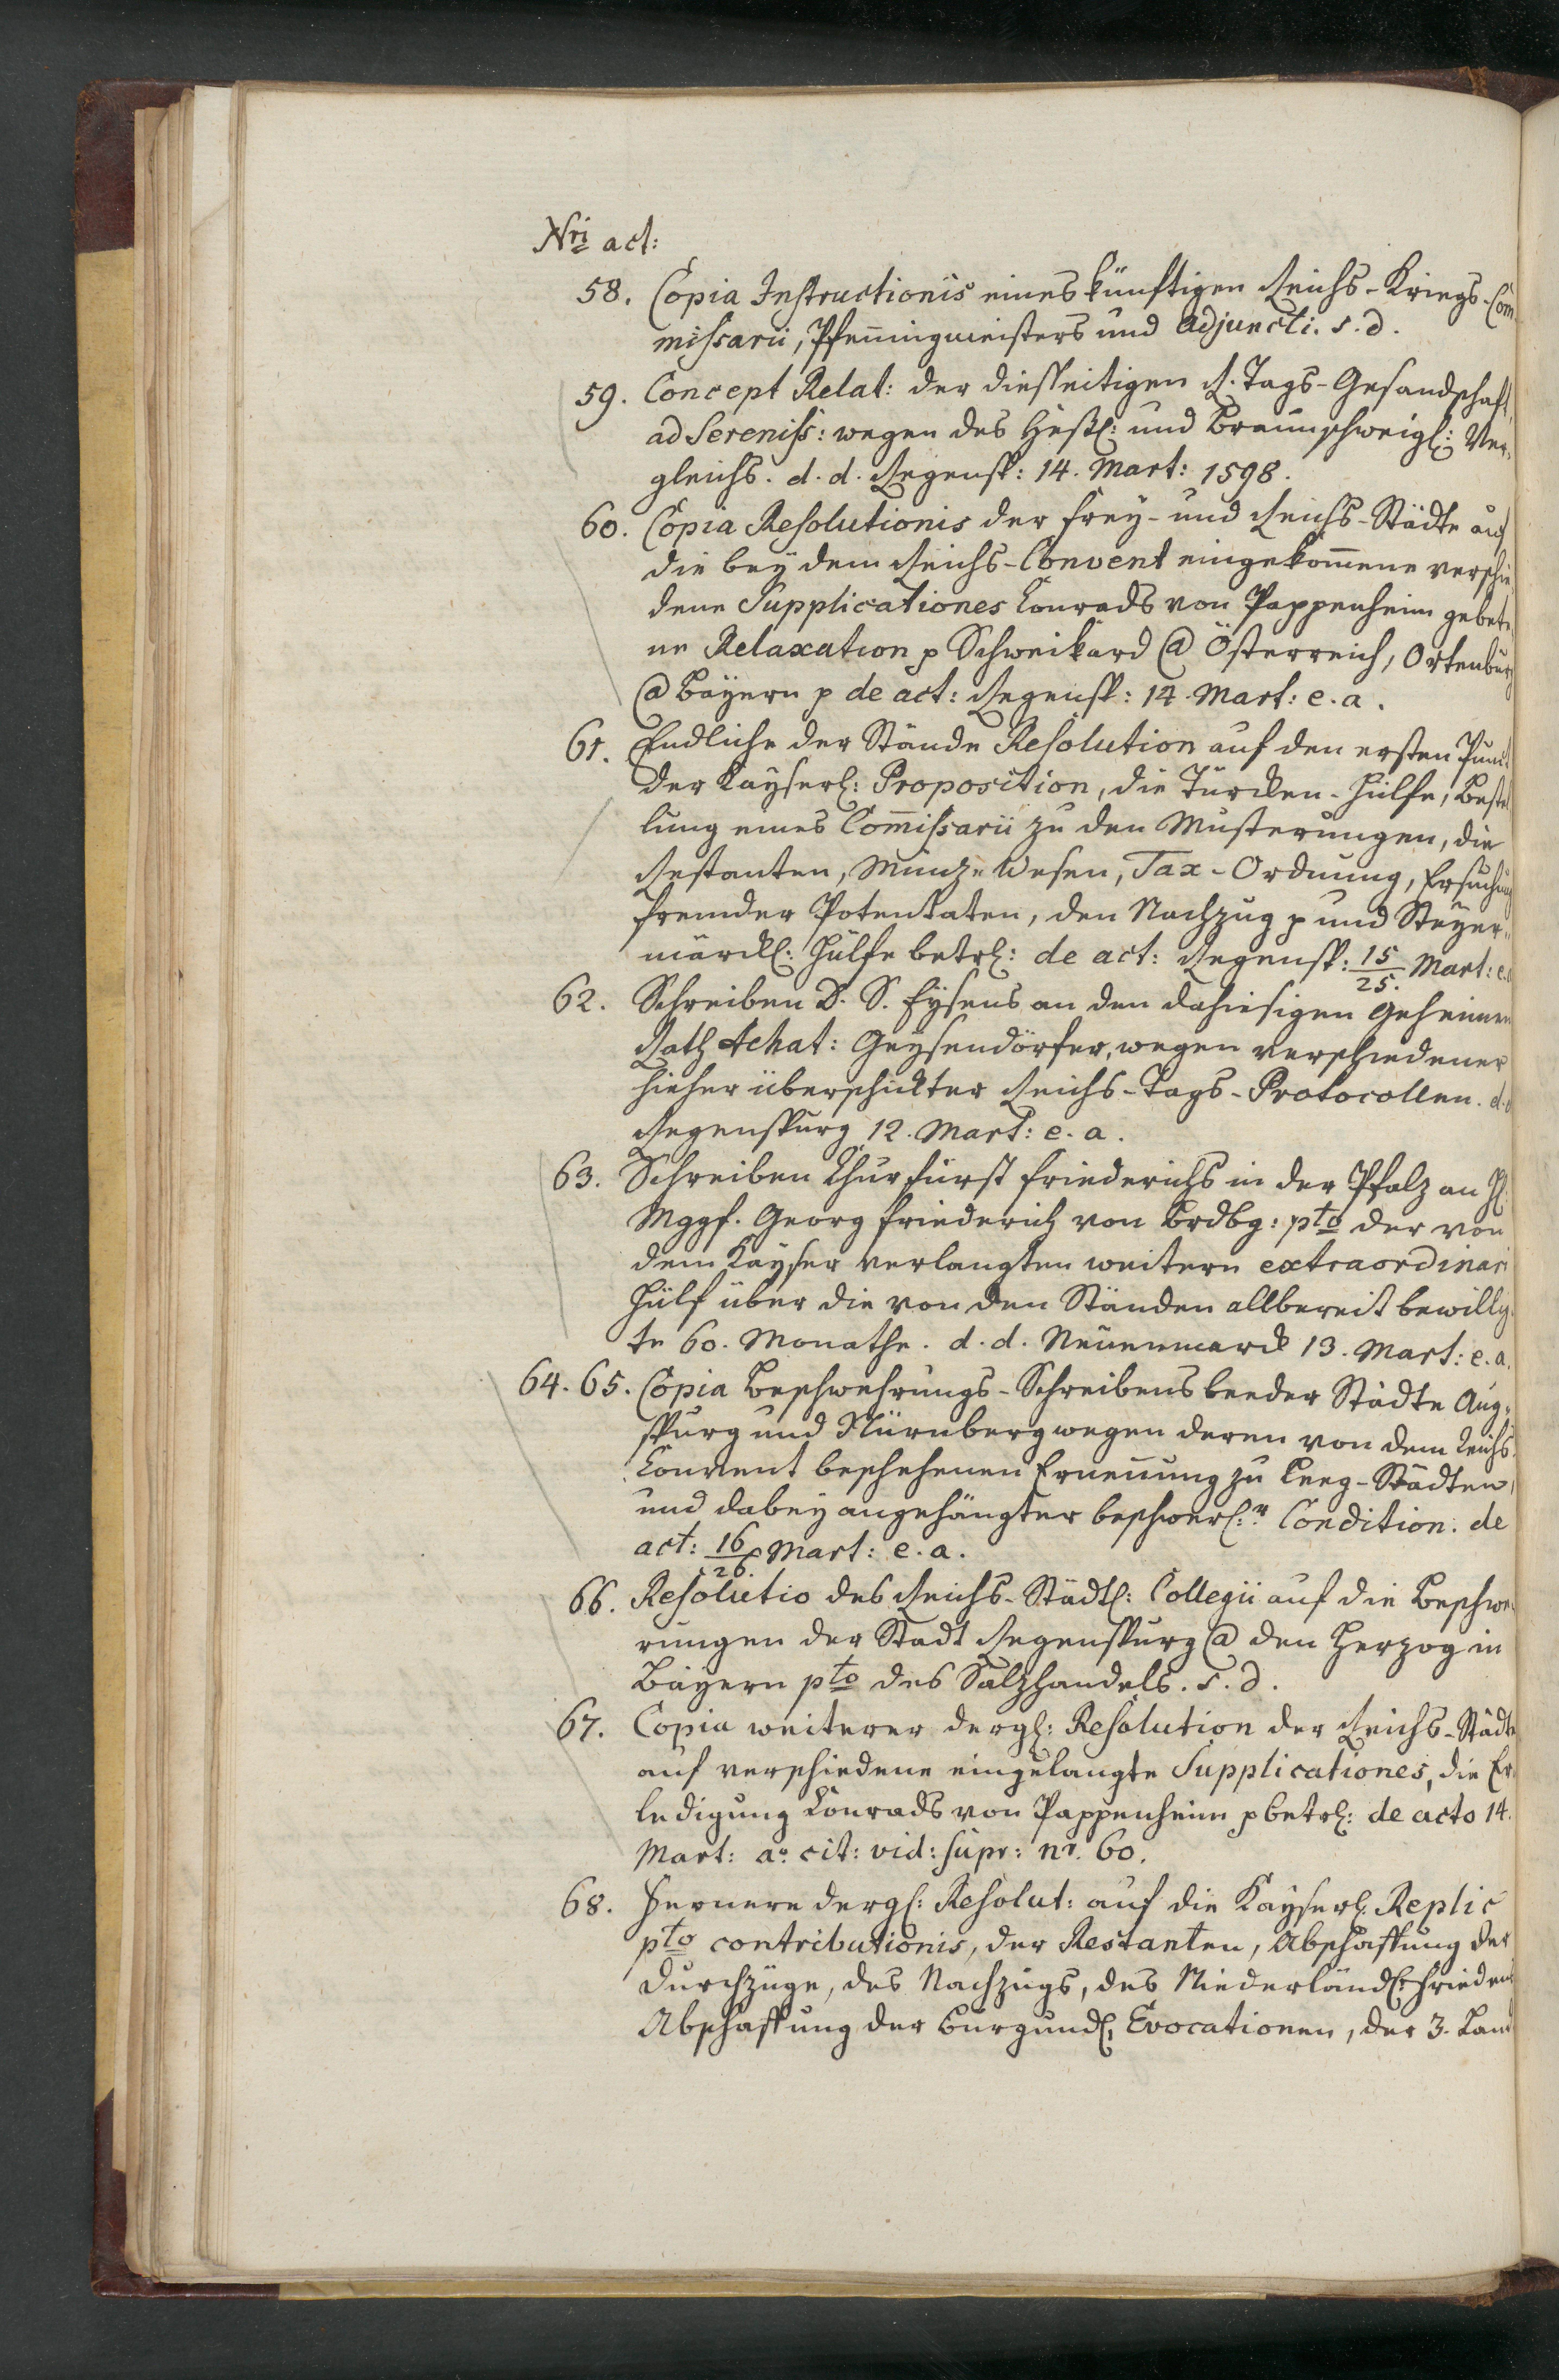 Nri act:
58. Copia Instructionis eines künftigen Reichs-Kriegs-Com
missarii, Pfenningmeisters und Adjuncti. s. d.
59. Concept Relat: der diesseitigen R. Tags-Gesandschafft
ad Sereniss: wegen des Heßl: und Braunschweigl: Ver-
gleichs. d. d. Regensp: 14. Mart: 1598.
60. Copia Resolutionis der Frey- und Reichs-Städte auf
die bey dem Reichs-Convent eingekom̅ene verschie
dene Supplicationes Conrads von Pappenheim gebete-
ne Relaxation p Schweikard @ Österreich, Ortenburg
@ Bayern p de act: Regensp: 14. Mart: e. a.
61. Endliche der Stände Resolution auf den ersten Punct
der Kayserl: Proposition, die Türcken-Hülfe, Bestel
lung eines Com̅issarii zu den Musterungen, die
Restanten, Münz-Wesen, Tax-Ordnung, Ersuchung
fremder Potentaten, den Nachzug p und Steyer-
märckl: Hülfe betrl: de act: Regensp: 15/25. Mart: e. a
62. Schreiben D. S. Eysens an den dahiesigen Geheimen
Rath Achat: Geysendörfer, wegen verschiedener
hieher überschickter Reichs-Tags-Protocollen. d. d
Regenspurg 12. Mart: e. a.
63. Schreiben Churfürst Friederichs in der Pfalz an H:
Mggf. Georg Friederich von Brdbg: pto der von
dem Kayser verlangten weitern extraordinari
Hülf über die von den Ständen allbereit bewillig-
te 60. Monathe. d. d. Neuenmarck 13. Mart: e. a.
64. 65. Copia Beschwehrungs-Schreibens beeder Städte Aug-
spurg und Nürnberg wegen deren von dem Reichs-
Convent beschehenen Ernennung zu Leeg-Städten,
und dabey angehängter beschwerl:r Condition. de
act: 16/26. Mart: e. a.
66. Resolutio des Reichs-Städtl: Collegii auf die Beschwe-
rungen der Stadt Regenspurg @ den Herzog in
Bayern pto des Salzhandels. s. d.
67. Copia weiterer dergl: Resolution der Reichs-Städte
auf verschiedene eingelangte Supplicationes, die Er-
ledigung Conrads von Pappenheim p betrl: de acto 14.
Mart: ao. cit: vid: supr: nr. 60.
68. Fernere dergl: Resolut: auf die Kayserl: Replic
pto contributionis, der Restanten, Abschaffung der
Durchzüge, des Nachzugs, des Niederländl: Friedens
Abschaffung der Burgundl: Evocationen, der 3. Land